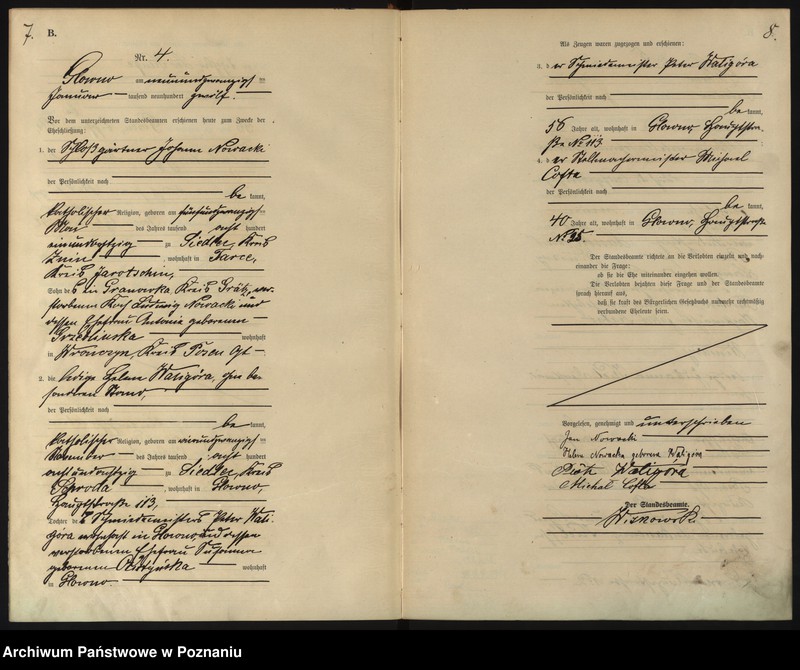 7.
B.
Nr. 4.
Glowno am neunundzwanzigsten
Januar tausend neunhundert zwölf.
Vor dem unterzeichneten Standesbeamten erschienen heute zum Zwecke der
Eheschließung:
1. der Schloßgärtner Johann Nowacki
der Persönlichkeit nach
be kannt,
katholischer Religion, geboren am fünfundzwanzigsten
Mai des Jahres tausend acht hundert
einundachtzig zu Siedlec, Kreis
Znin, wohnhaft in Tarce,
Kreis Jarotschin,
Sohn des in Granowko Kreis Grätz ver-
storbenen Ludwig Nowacki und
dessen Ehefrau Antonie geborenen
wohnhaft
in Wronczyn, Kreis Posen Ost
2. die ledige Helene Waligóra, ohne be-
sonderen Stand,
der Persönlichkeit nach
be kannt,
katholischer Religion, geboren am vierundzwanzigsten
des Jahres tausend acht hundert
achtundachtzig zu Siedlec, Kreis
Schroda, wohnhaft in Glowno,
Hauptstraße 113,
Tochter des Schmiedemeisters Peter Wali-
góra wohnhaft in Glowno, und dessen
verstorbenen Ehefrau Susanna
geborenen wohnhaft
in Glowno.
8.
Als Zeugen waren zugezogen und erschienen:
3. der Schmiedemeister Peter Waligóra
der Persönlichkeit nach
be kannt,
58 Jahre alt, wohnhaft in Glowno, Hauptstra-
ße No 113
4. der Stellmachermeister Michael
Cofta
der Persönlichkeit nach
be kannt,
40 Jahre alt, wohnhaft in Glowno, Hauptstraße
No
Der Standesbeamte richtete an die Verlobten einzeln und nach-
einander die Frage:
ob sie die Ehe miteinander eingehen wollen.
Die Verlobten bejahten diese Frage und der Standesbeamte
sprach hierauf aus,
daß sie kraft des Bürgerlichen Gesetzbuchs nunmehr rechtmäßig
verbundene Eheleute seien.
Vorgelesen, genehmigt und unterschrieben
Jan Nowacki
Helena Nowacka geborene Waligóra
Piotr Waligóra
Michał Cofta
Der Standesbeamte.
Archiwum Państwowe w Poznaniu